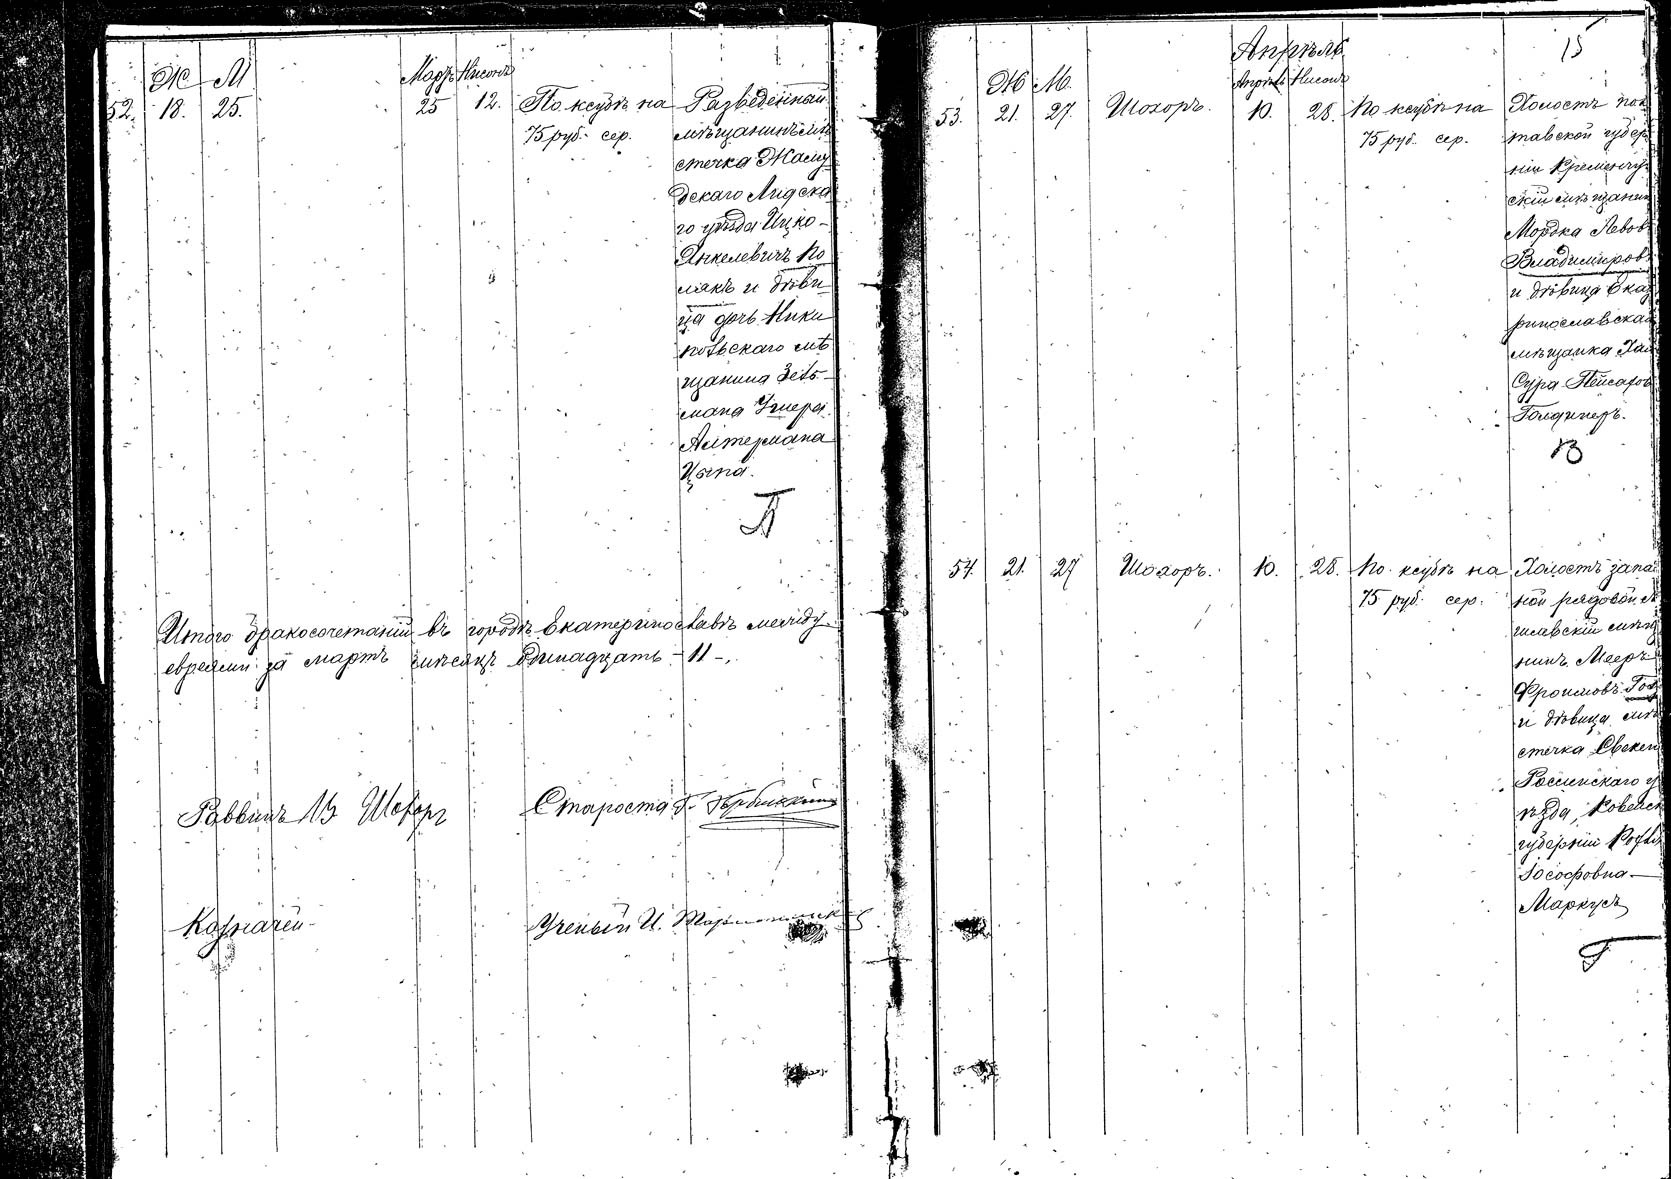 Ж М Мартъ Нисонъ
52. 18. 25. 25 12. По ксубѣ на 75 руб. сер.
Разведенный
мѣщанинъ мѣ
стечка Жолу
дскаго Лидска
го уѣзда Ицко-
Янкелевичъ По
лякъ и дѣви
ца дочь Нико
польскаго мѣ
щанина Зель-
мана
Алтермана
Ципа.
П
Итого бракосочетаній въ городѣ Екатеринославѣ между
евреями за мартъ мѣсяцъ одинадцать - 11 -.
Раввинъ В Шохоръ
Староста Г.
Казначей
Ученый И.
15
Апрѣль
Ж М. Апрѣль Нисонъ
53. 21. 27. Шохоръ. 10. 28. По ксубѣ на 75 руб. сер.
Холостъ пол
тавской губер
ніи Кременчуг
скій мѣщанин
Мордка Левов
Владиміров
и дѣвица Екат
ринославская
мѣщанка Хая
Сура Пейсахов
Голдинеръ.
В
54. 21. 27 Шохоръ. 10. 28. По ксубѣ на 75 руб. сер.
Холостъ запа
ной рядовой
мѣщ
нинъ Мееръ
Фроимовъ
и дѣвица мѣ
стечка
Россіенскаго у
ѣзда, Ковенск
губерніи
Іософовна
Маркусъ
Г